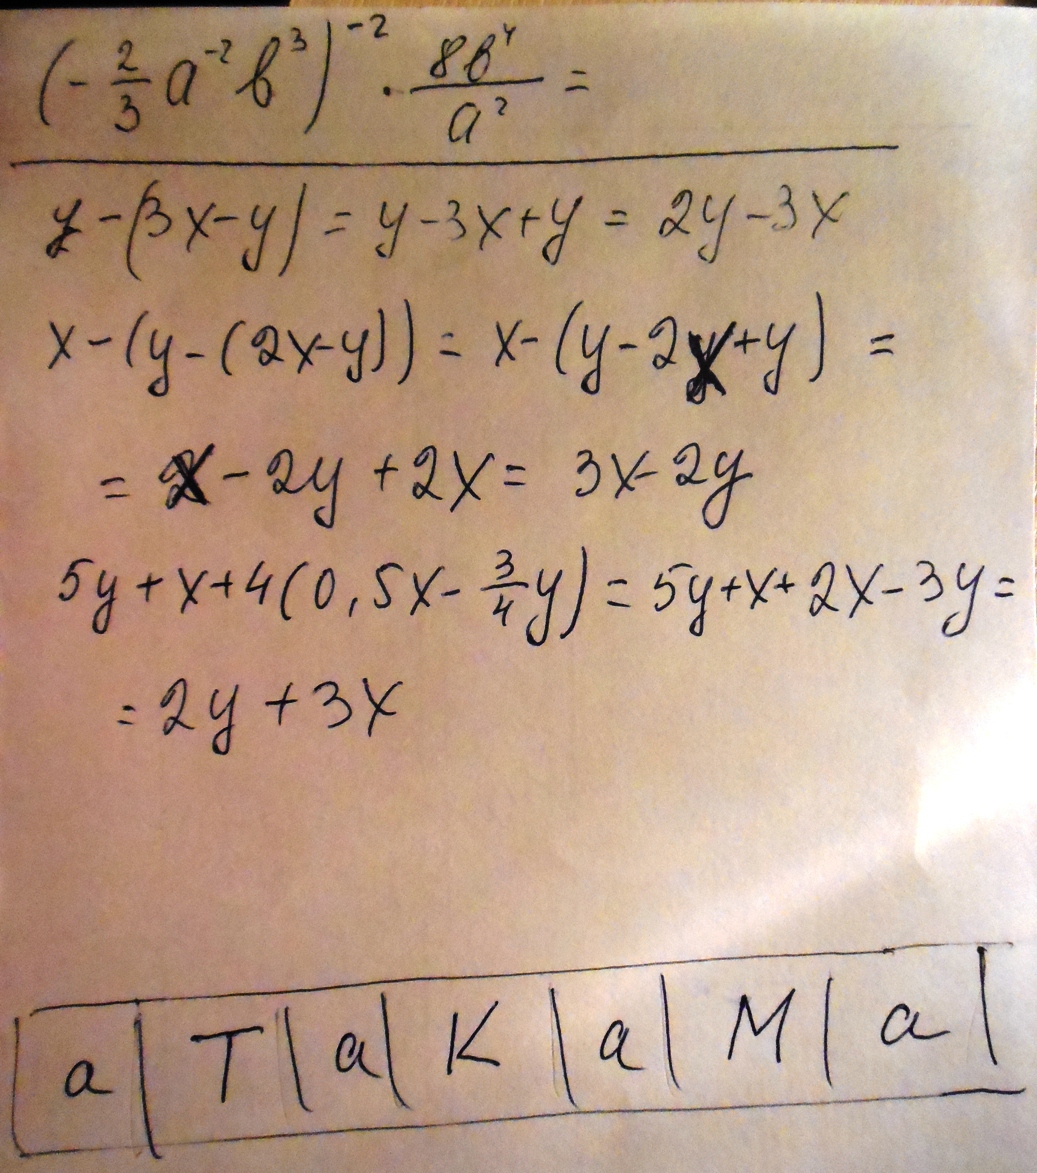 (-2/3 a⁻² b³)⁻² · 8b⁴/a² =
y-(3x-y) = y-3x+y = 2y-3x
x-(y-(2x-y)) = x-(y-2x+y) =
= x-2y+2x = 3x-2y
5y+x+4(0,5x-3/4y) = 5y+x+2x-3y=
= 2y+3x
а | Т | а | К | а | М | а |